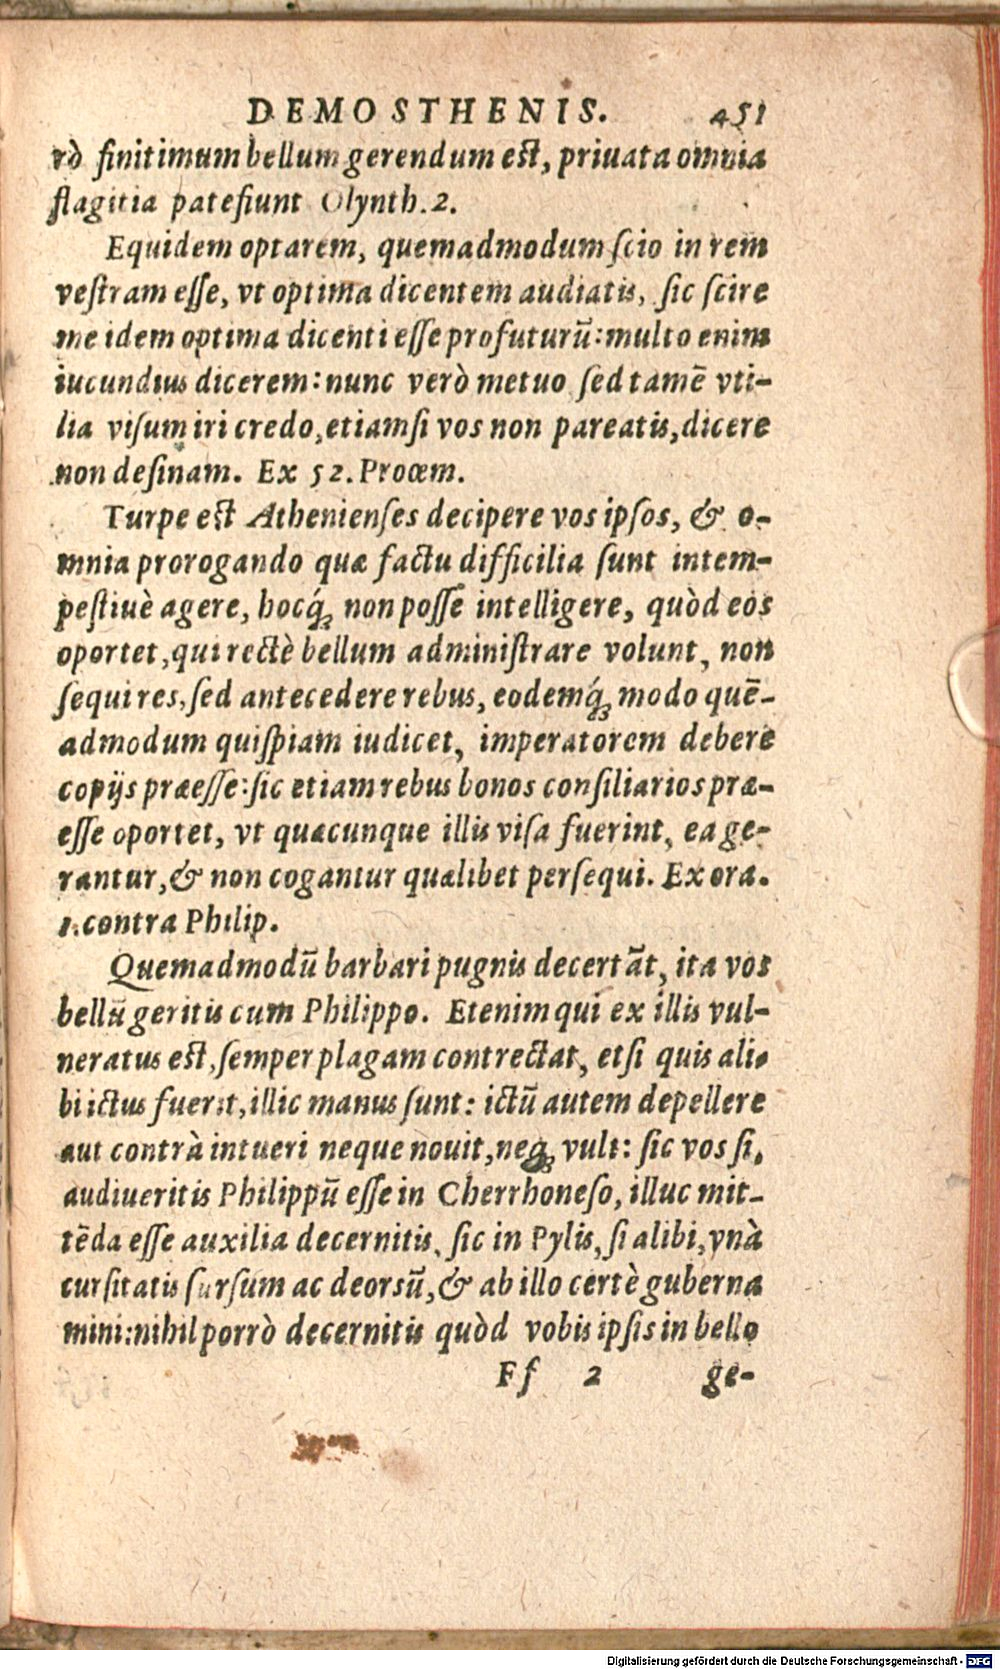 DEMOSTHENIS. 451
rò finitimum bellum gerendum est, priuata omnia
flagitia patefiunt Olynth. 2.
Equidem optarem, quemadmodum scio in rem
vestram esse, vt optima dicentem audiatis, sic scire
me idem optima dicenti esse profuturū: multo enim
iucundius dicerem: nunc verò metuo sed tamē vti-
lia visum iri credo, etiamsi vos non pareatis, dicere
non desinam. Ex 52. Proœm.
Turpe est Athenienses decipere vos ipsos, & o-
mnia prorogando quæ factu difficilia sunt intem-
pestiuè agere, hocq́; non posse intelligere, quòd eos
oportet, qui rectè bellum administrare volunt, non
sequi res, sed antecedere rebus, eodemq́; modo quē-
admodum quispiam iudicet, imperatorem debere
copijs præesse: sic etiam rebus bonos consiliarios præ-
esse oportet, vt quæcunque illis visa fuerint, ea ge-
rantur, & non cogantur quælibet persequi. Ex ora.
1. contra Philip.
Quemadmodū barbari pugnis decertāt, ita vos
bellū geritis cum Philippo. Etenim qui ex illis vul-
neratus est, semper plagam contrectat, etsi quis ali-
bi ictus fuerit, illic manus sunt: ictū autem depellere
aut contrà intueri neque nouit, neq; vult: sic vos si,
audiueritis Philippū esse in Cherrhoneso, illuc mit-
tēda esse auxilia decernitis, sic in Pylis, si alibi, vnà
cursitatis sursum ac deorsū, & ab illo certè guberna
mini: nihil porrò decernitis quòd vobis ipsis in bello
Ff 2 ge-
Digitalisierung gefördert durch die Deutsche Forschungsgemeinschaft - DFG